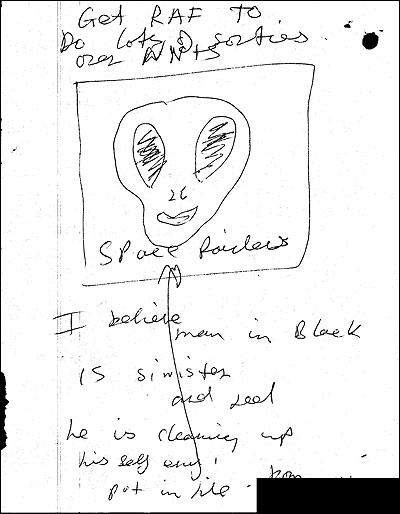 Get RAF TO
Do lots of sorties.
over
Space Raiders
I believe
man in Black
is sinister
and
he is cleaning up
his self
put in